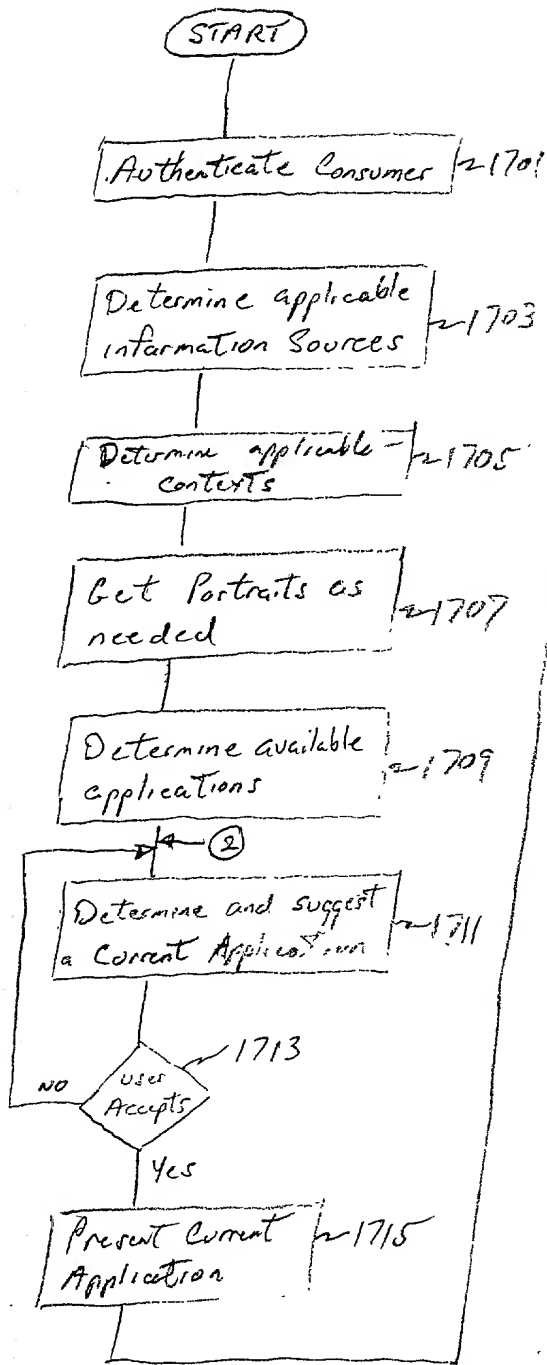 START
Authenticate Consumer
1701
Determine applicable
information Sources
1703
Determine applicable
contexts
1705
Get Portraits as
needed
1707
Determine available
applications
1709
2
Determine and suggest
a Current Application
1711
1713
User
Accepts
NO
Yes
Present Current
Application
1715